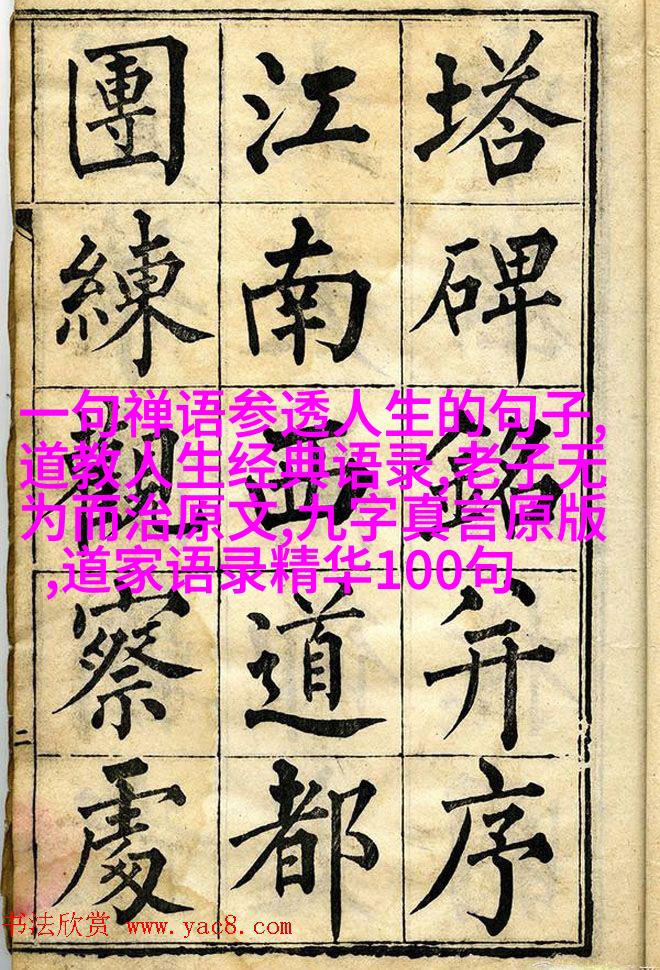 塔碑銘并序
江南西道都
團練觀察處
二
一句禅语参透人生的句子,
道教人生经典语录,老子无
为而治原文,九字真言原版
,道家语录精华100句
书法欣赏 www.yac8.com